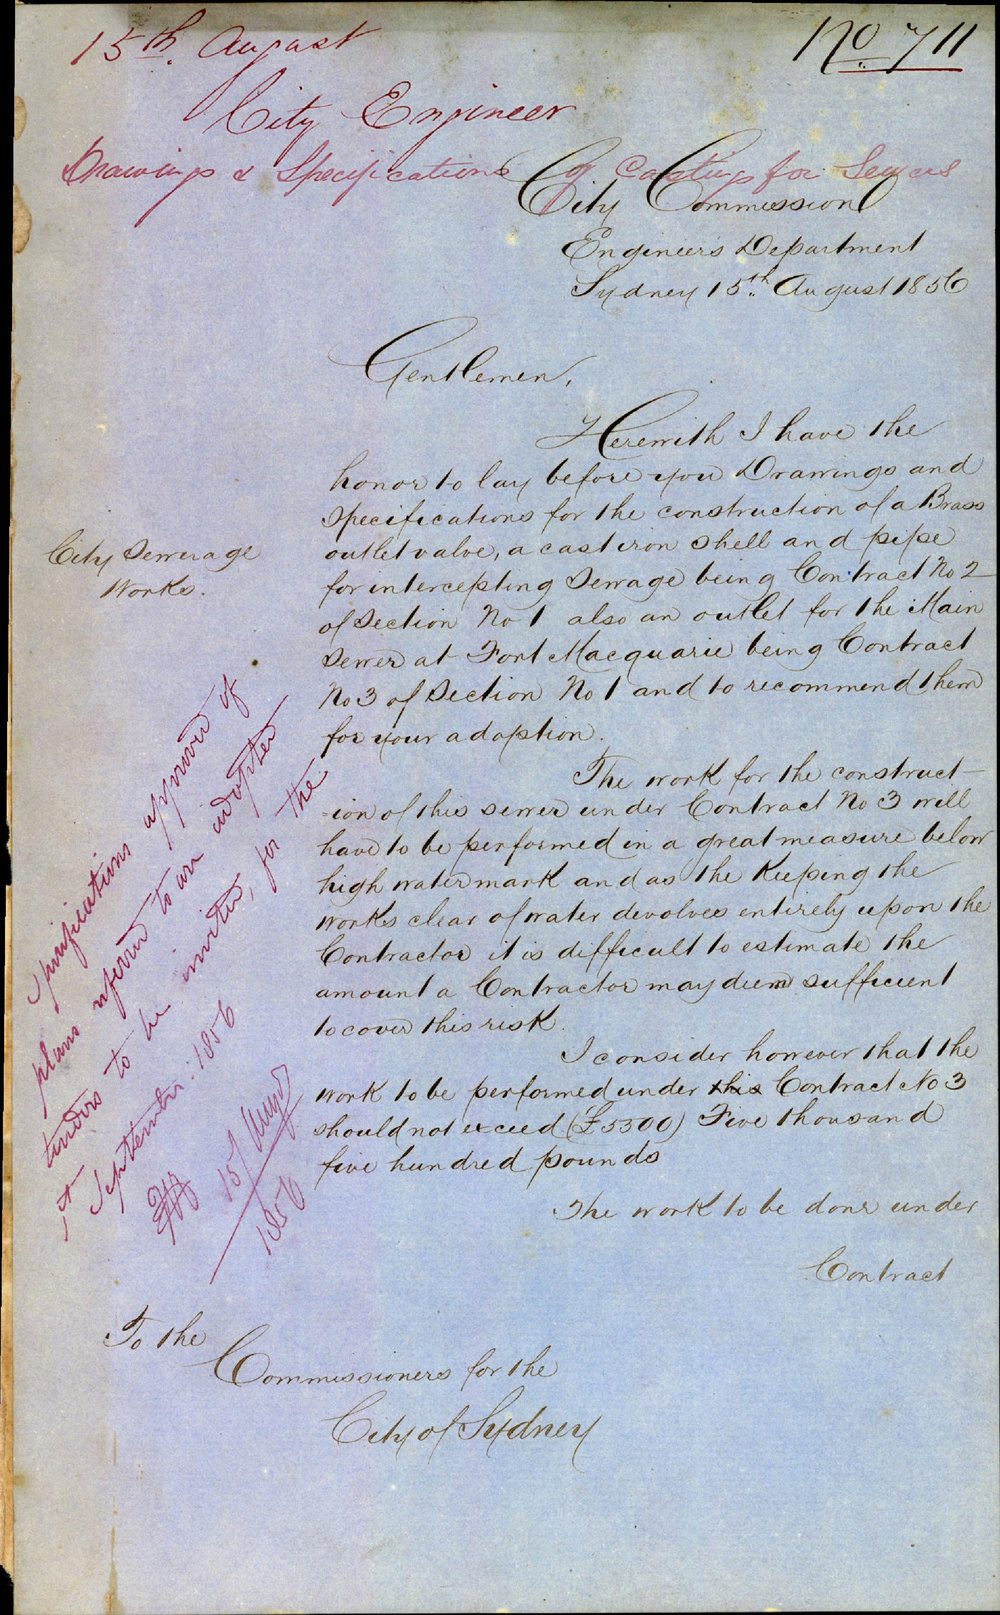 15th. August
No 711
City Engineer
Drawings & Specifications of Castings for Sewers
City Commission
Engineer's Department
Sydney 15th August 1856
Gentlemen,
Herewith I have the
honor to lay before you Drawings and
Specifications for the construction of a Brass
outlet valve, a cast iron shell and pipe
for intercepting Sewage being Contract No 2
of Section No 1 also an outlet for the Main
Sewer at Fort Macquarie being Contract
No 3 of Section No 1 and to recommend them
for your adoption.
City Sewerage
Works.
The work for the construct-
-ion of this sewer under Contract No 3 will
have to be performed in a great measure below
high water mark and as the Keeping the
works clear of water devolves entirely upon the
Contractor it is difficult to estimate the
amount a Contractor may deem sufficient
to cover this risk.
I consider however that the
work to be performed under this Contract No 3
should not exceed (£5500) Five thousand
five hundred pounds
The work to be done under
Contract
Specifications approved of
plans referred to are adopted
tenders to be invited, for the
1st September: 1856
15/ Augst
1856
To the
Commissioners for the
City of Sydney